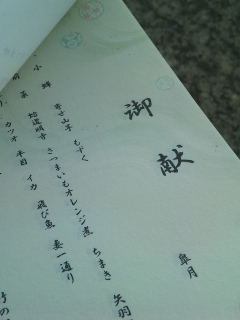 御献
皐月
小鉢 寄せ山芋 もずく
前菜 粽道明寺 さつまいもオレンジ煮 ちまき 矢羽
カツオ 平目 イカ 飛び魚 妻一通り